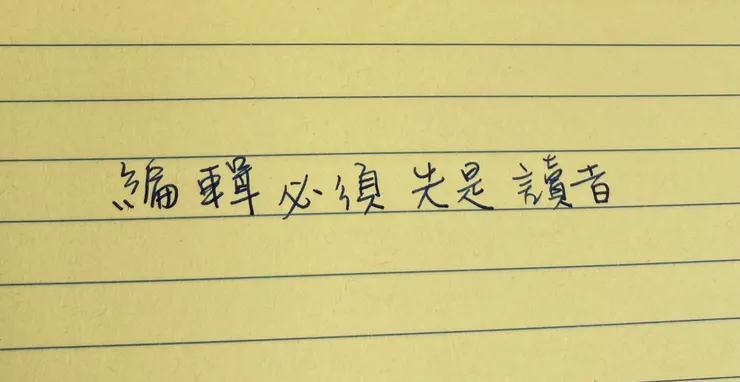 編輯必須先是讀者